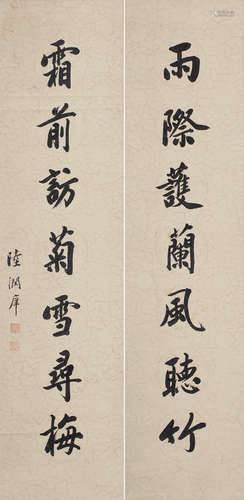 雨際護蘭風聽竹
霜前訪菊雪尋梅
陸潤庠